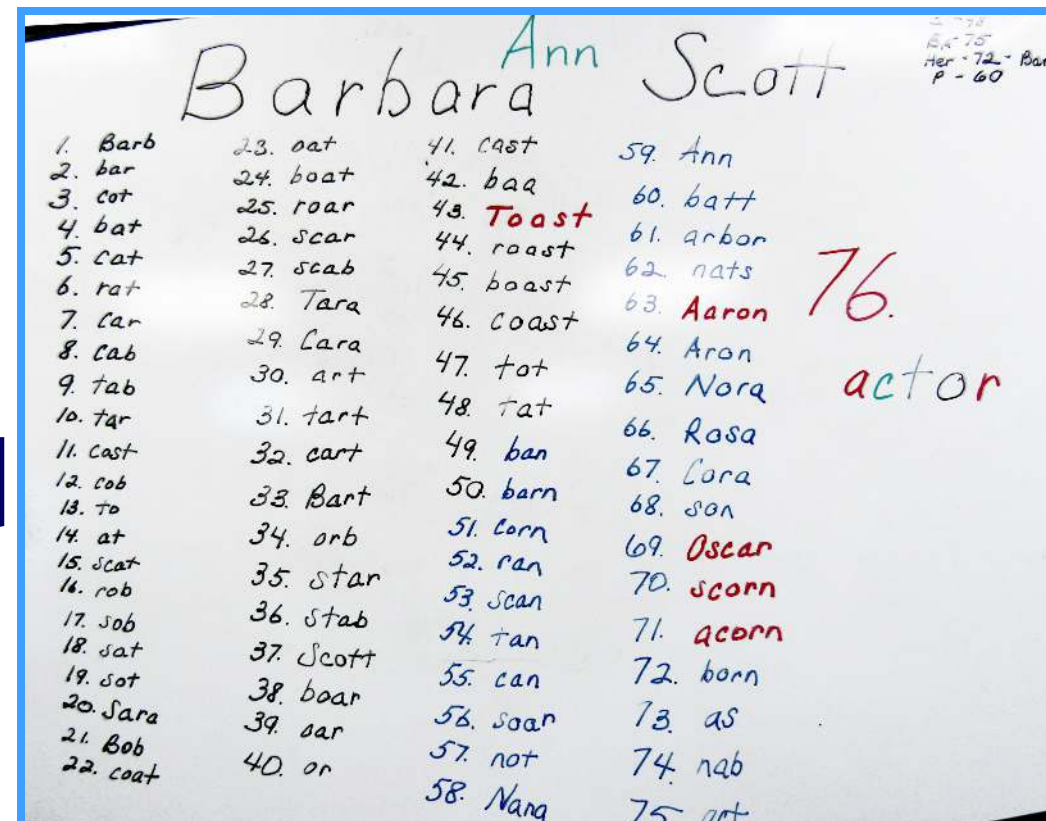 Ann
Barbara Scott
Her - 72 - Bar
P - 60
1. Barb
2. bar
3. cot
4. bat
5. cat
6. rat
7. Car
8. Cab
9. tab
10. tar
11. cost
12. cob
13. to
14. at
15. scat
16. rob
17. sob
18. sat
19. sot
20. Sara
21. Bob
22. coat
23. oat
24. boat
25. roar
26. scar
27. scab
28. Tara
29. Cara
30. art
31. tart
32. cart
33. Bart
34. orb
35. star
36. stab
37. Scott
38. boar
39. oar
40. or
41. cast
42. baa
43. Toast
44. roast
45. boast
46. coast
47. tot
48. tat
49. ban
50. barn
51. corn
52. ran
53. scan
54. tan
55. can
56. soar
57. not
58. Nana
59. Ann
60. batt
61. arbor
62. nats
63. Aaron
64. Aron
65. Nora
66. Rosa
67. Cora
68. son
69. Oscar
70. scorn
71. acorn
72. born
73. as
74. nab
75
76.
actor